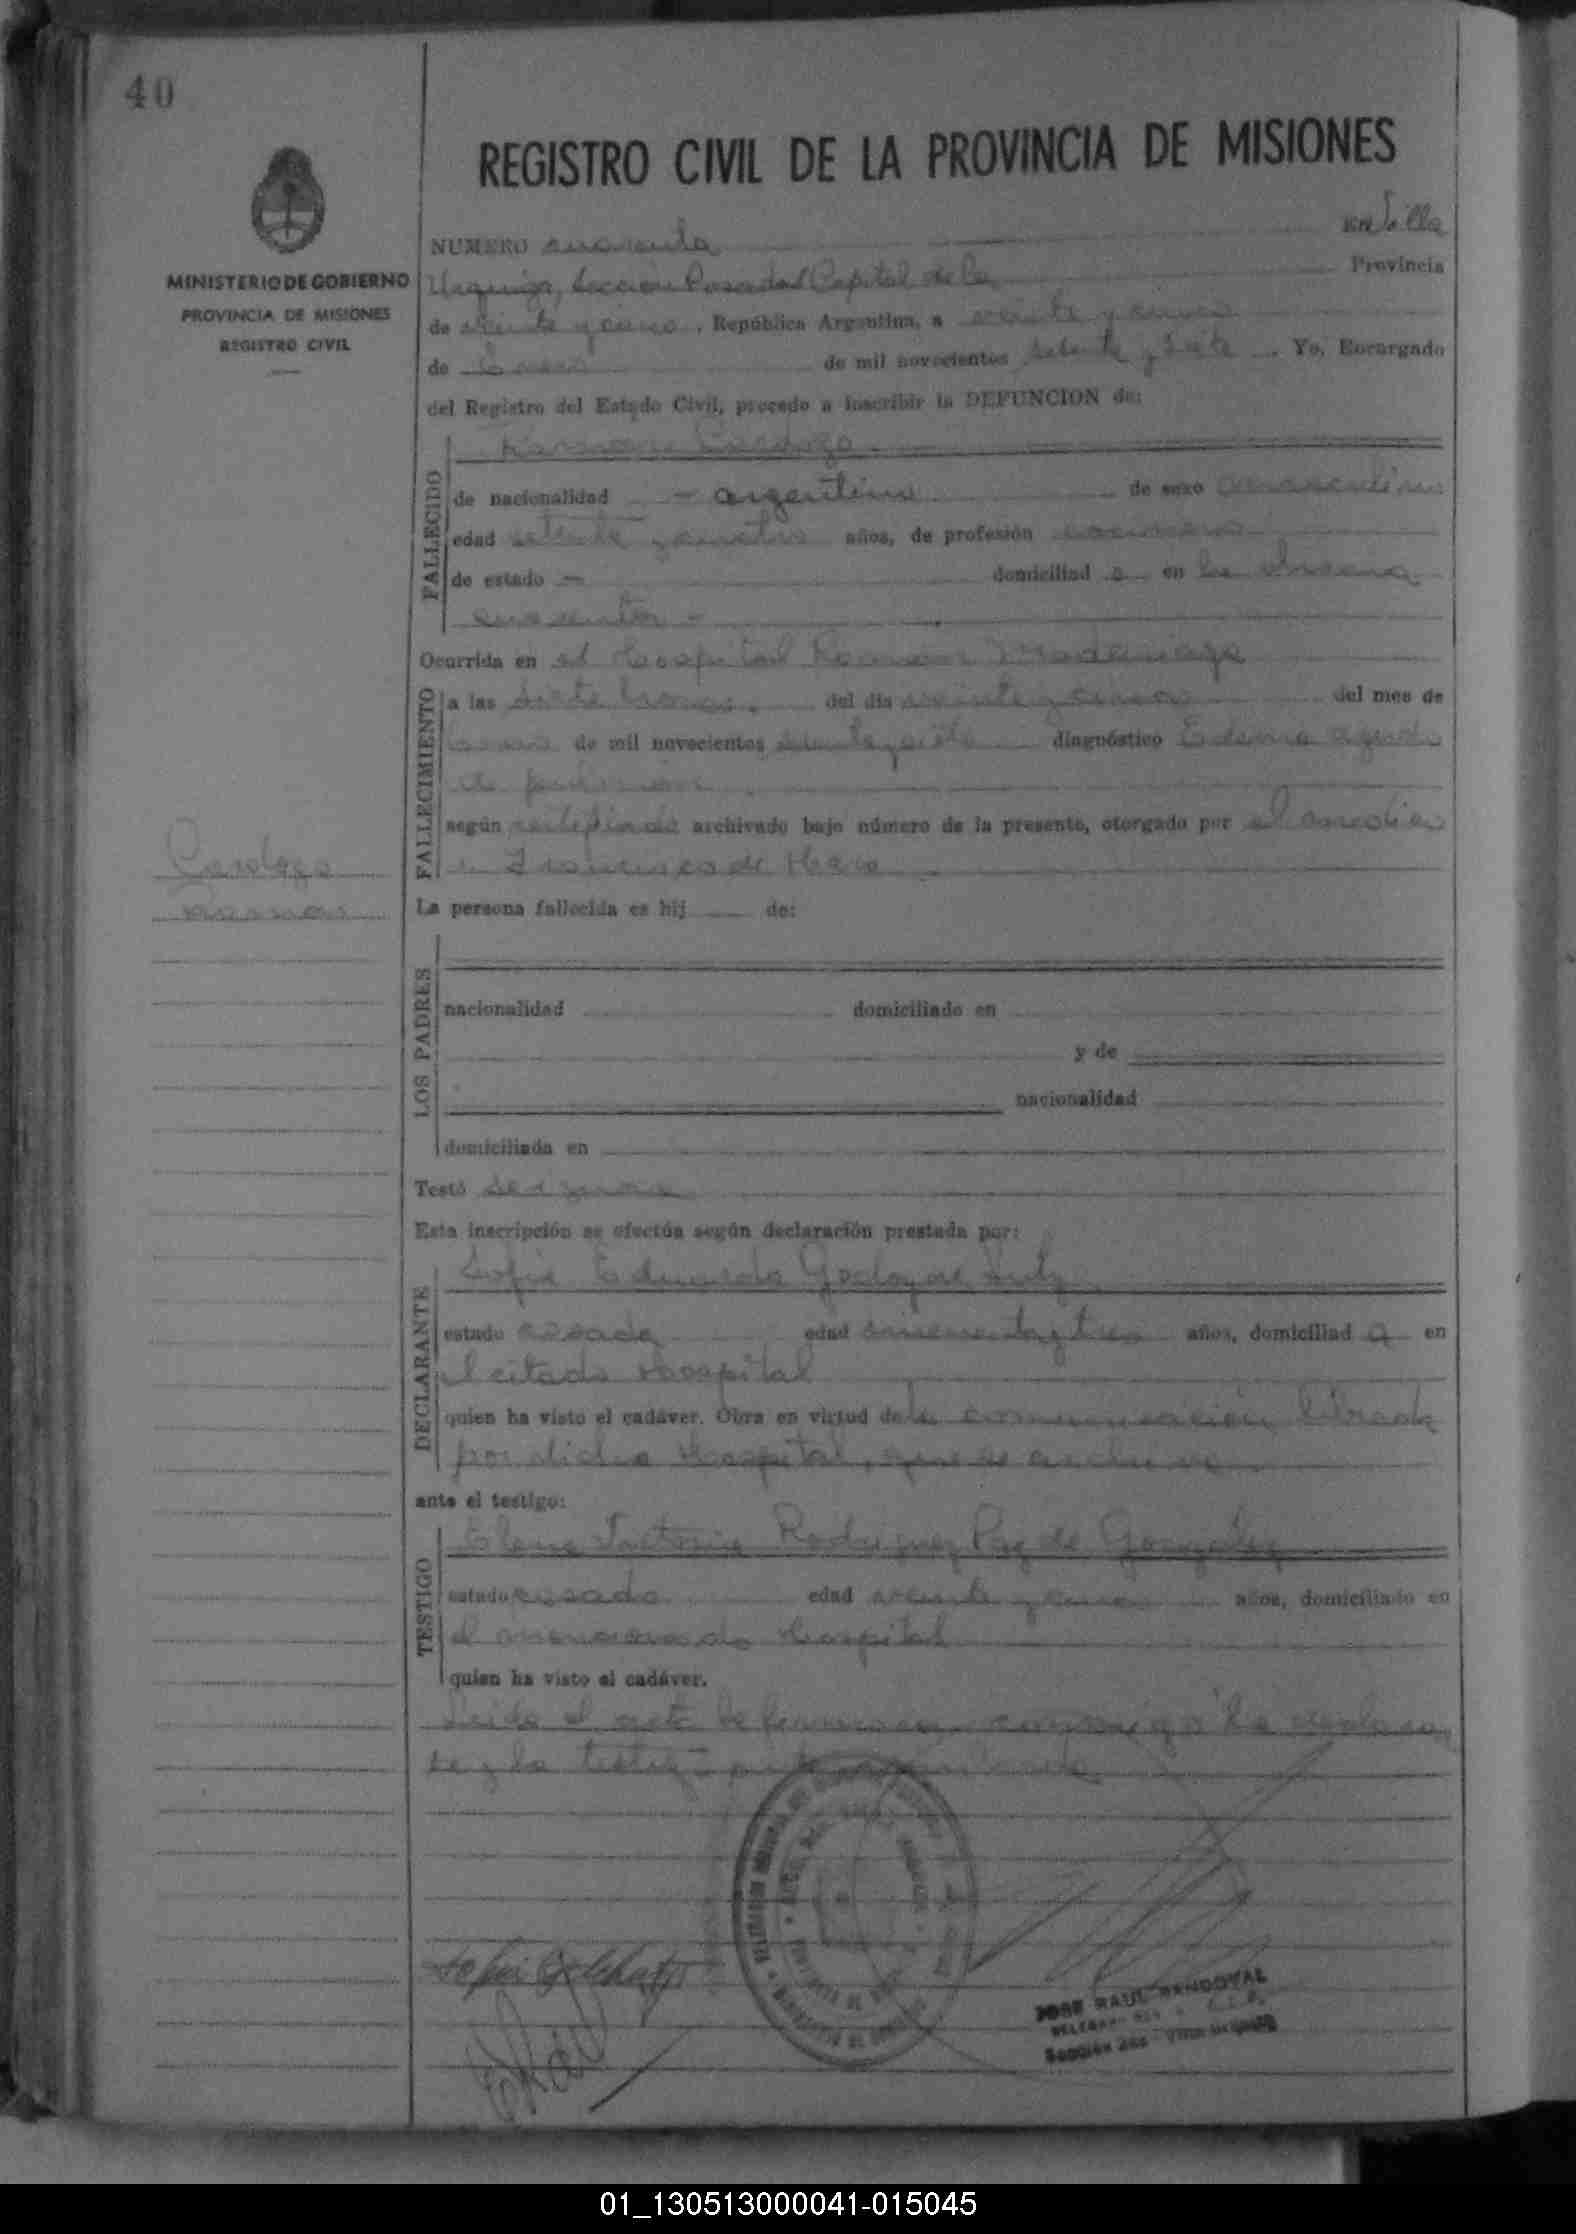 40
REGISTRO CIVIL DE LA PROVINCIA DE MISIONES
MINISTERIO DE GOBIERNO
PROVINCIA DE MISIONES
REGISTRO CIVIL
NUMERO cuarenta EN Villa
Urquiza, Sección Posadas Capital de la Provincia
de veinte y cinco, República Argentina, a veinte y cinco
de Enero de mil novecientos setenta y siete. Yo, Encargado
del Registro del Estado Civil, procedo a inscribir la DEFUNCION de:
FALLECIDO
Ramon Cardozo
de nacionalidad - argentino de sexo masculino
edad setenta y cuatro años, de profesión
de estado - domiciliad o en la chacra
cuarenta -
FALLECIMIENTO
Ocurrida en el Hospital Ramon Madariaga
a las siete horas. del día veinte y cinco del mes de
Enero de mil novecientos setenta y siete diagnóstico Edema agudo
de pulmón
según certificado archivado bajo número de la presente, otorgado por el medico
Francisco de Haro
Cardozo
Ramon
La persona fallecida es hij de:
LOS PADRES
nacionalidad domiciliado en
y de
nacionalidad
domiciliada en
Testó se ignora
Esta inscripción se efectúa según declaración prestada por:
DECLARANTE
Sofia Eduarda Godoy de
estado casada edad cincuenta y tres años, domiciliad a en
el citado Hospital
quien ha visto el cadáver. Obra en virtud de la comunicación librada
por dicho Hospital, que se archiva
ante el testigo:
TESTIGO
Elena Victoria Rodriguez Paz de Gonzalez
estado casada edad veinte y cinco años, domiciliado en
el mencionado Hospital
quien ha visto el cadáver.
Leida el acta la firmaron conmigo la declaran
te y la testigo
JOSE RAUL SANDOVAL
01_130513000041-015045